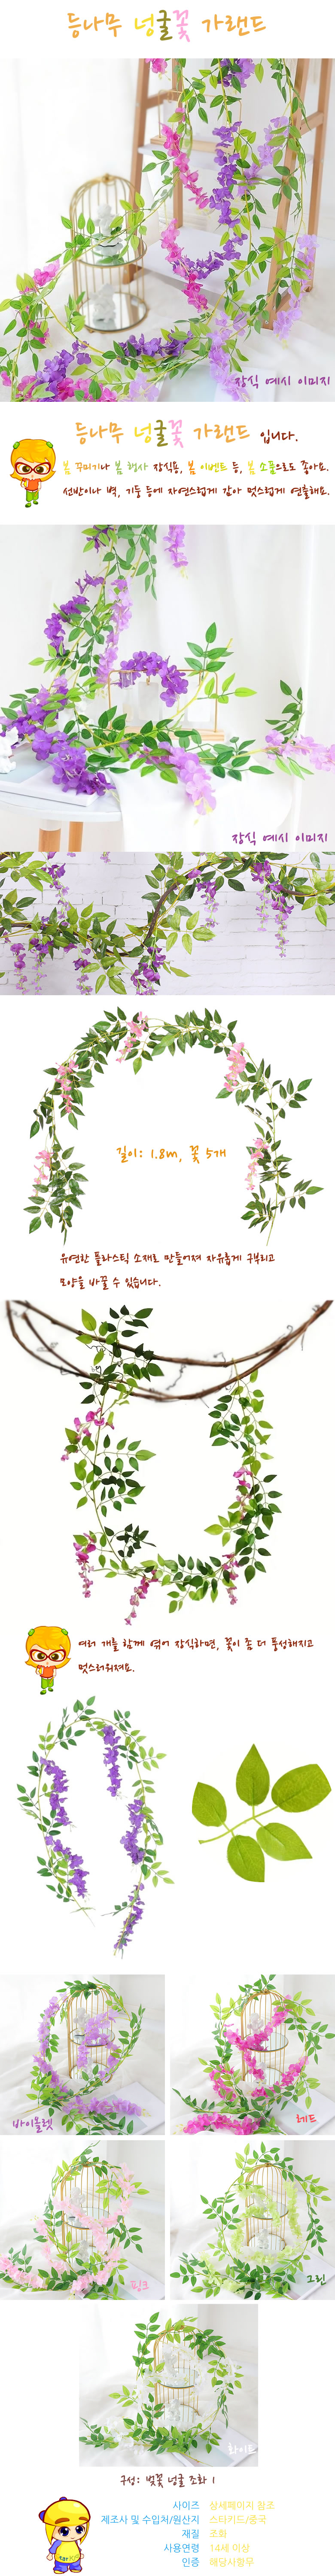 등나무 넝쿨꽃 가랜드
장식 예시 이미지
등나무 넝쿨꽃 가랜드 입니다.
봄 꾸미기나 봄 행사 장식용, 봄 이벤트 등, 봄 소품으로도 좋아요.
선반이나 벽, 기둥 등에 자연스럽게 감아 멋스럽게 연출해요.
장식 예시 이미지
길이: 1.8m, 꽃 5개
유연한 플라스틱 소재로 만들어져 자유롭게 구부리고
모양을 바꿀 수 있습니다.
여러 개를 함께 엮어 장식하면, 꽃이 좀 더 풍성해지고
멋스러워져요.
바이올렛
레드
핑크
그린
화이트
구성: 벚꽃 넝쿨 조화 1
사이즈 상세페이지 참조
제조사 및 수입처/원산지 스타키드/중국
재질 조화
사용연령 14세 이상
인증 해당사항무